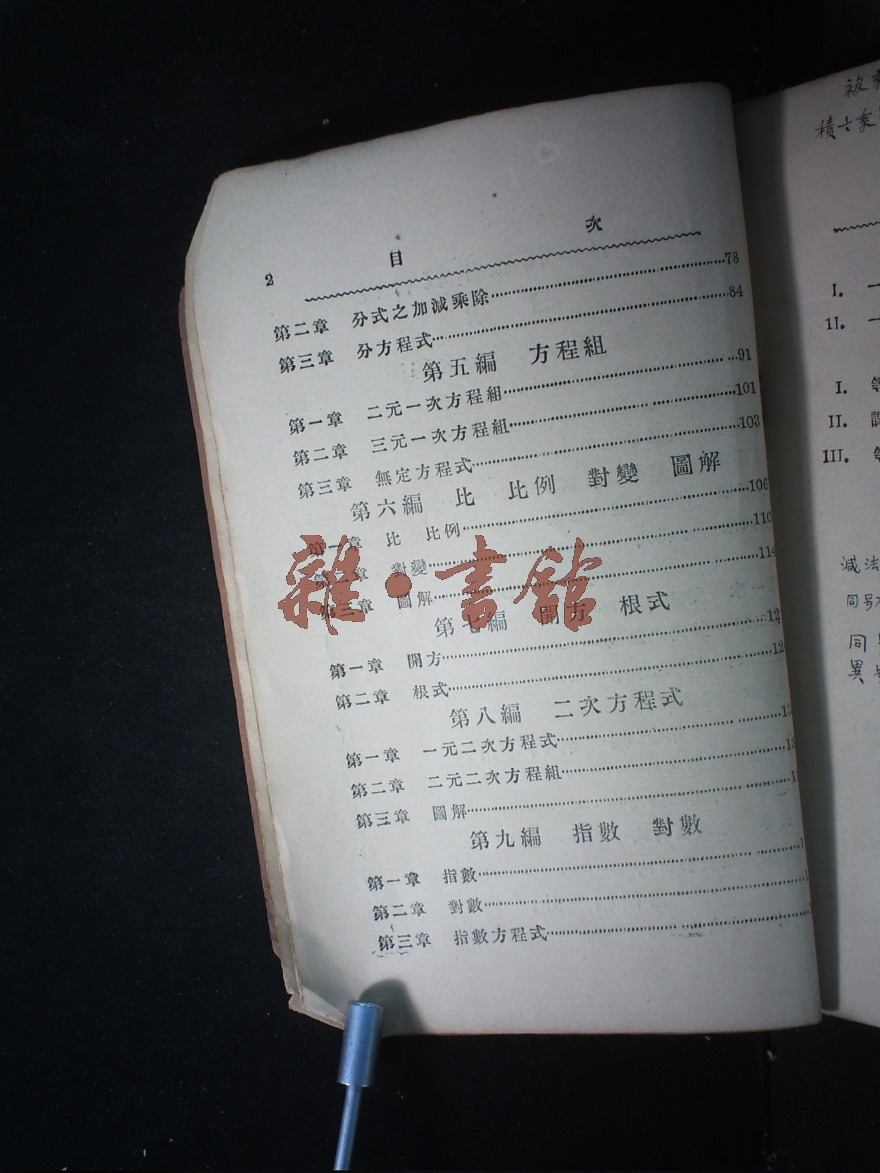 2 目 次
第二章 分式之加減乘除 78
第三章 分方程式 84
第五編 方程組
第一章 二元一次方程組 91
第二章 三元一次方程組 101
第三章 無定方程式 103
第六編 比 比例 對變 圖解
第一章 比 比例 106
第二章 對變 110
第三章 圖解 114
第七編 開方 根式
第一章 開方
第二章 根式
第八編 二次方程式
第一章 一元二次方程式
第二章 二元二次方程組
第三章 圖解
第九編 指數 對數
第一章 指數
第二章 對數
第三章 指數方程式
雜·書館
積
I. 一
II. 一
I.
II.
III.
減法
同